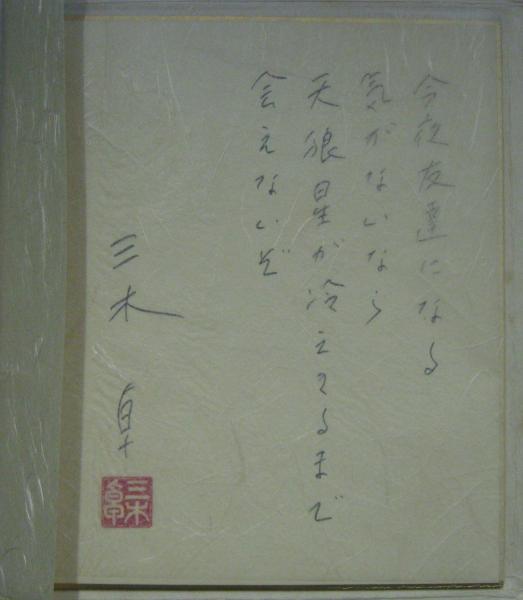 今夜友達になる
気がないなら
天狼星が冷えてるまで
会えないぞ
三木 卓
三木卓